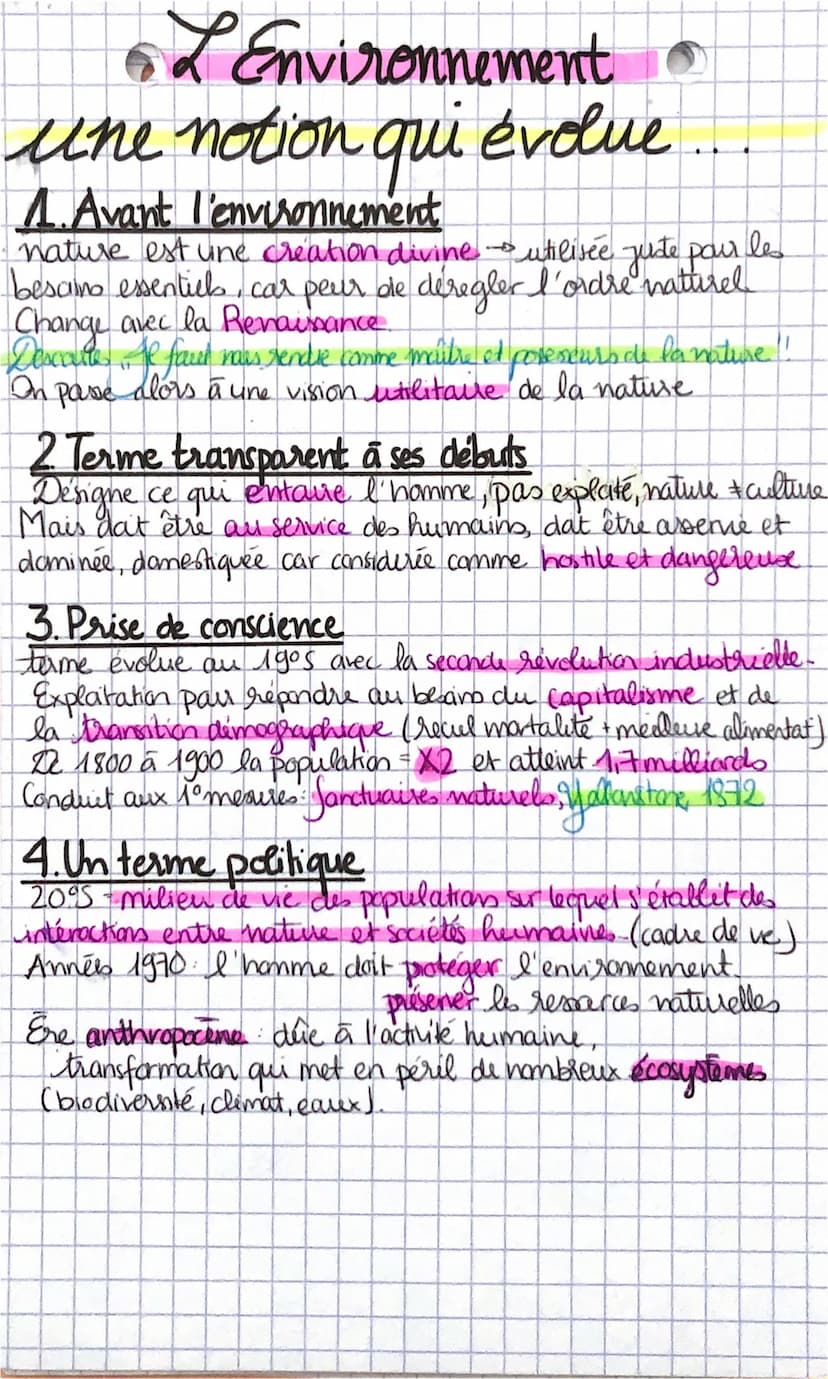 L'Environnement
une notion qui évolue...
1. Avant l'environnement
nature est une création divine → utilisée juste pour les
besoins essentiels, car peur de déregler l'ordre naturel
Change avec la Renaissance
Descartes "Il faut nous rendre comme maître et possesseurs de la nature"
On passe alors à une vision utilitaire de la nature
2. Terme transparent à ses débuts
Désigne ce qui entoure l'homme, pas exploité, nature ≠ culture
Mais doit être au service des humains, doit être asservie et
dominée, domestiquée car considérée comme hostile et dangereuse
3. Prise de conscience
terme évolue au 19°s avec la seconde révolution industrielle.
Exploitation pour répondre au besoins du capitalisme et de
la transition démographique (recul mortalité + meilleure alimentat°)
De 1800 à 1900 la population = X2 et atteint 1,7 milliards
Conduit aux 1° mesures: Sanctuaires naturels, Yallowstone, 1872
4. Un terme politique
20°s - milieu de vie des populations sur lequel s'établit des
intéractions entre nature et sociétés humaines. (cadre de vie)
Années 1970: l'homme doit protéger l'environnement.
préserver les ressources naturelles
Ère anthropocène: dûe à l'activité humaine,
transformation qui met en péril de nombreux écosystèmes
(biodiversité, climat, eaux).